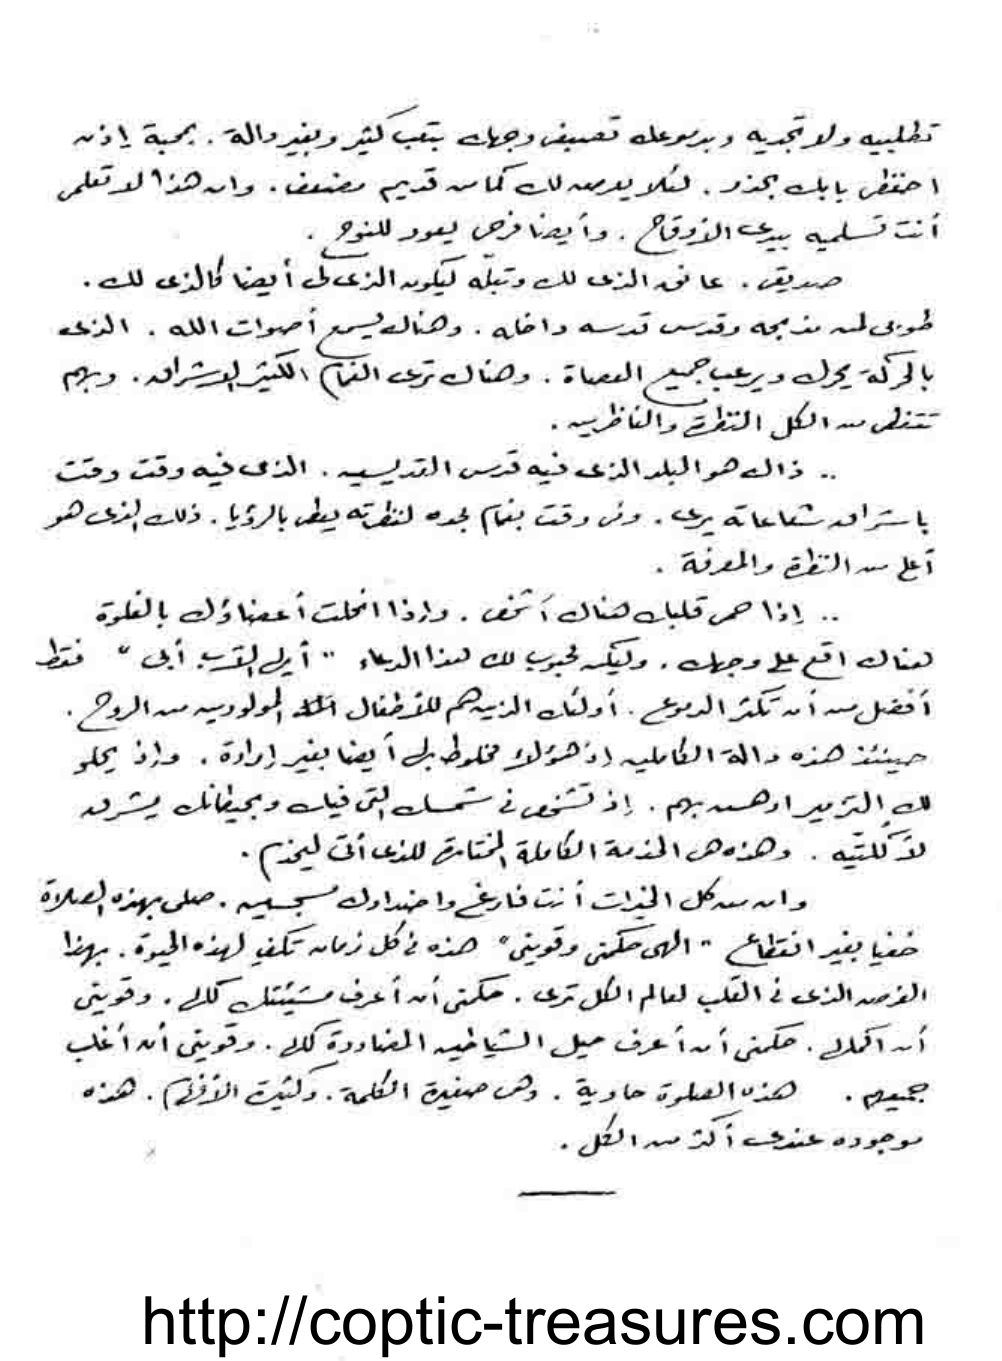 تطلبيه ولا تجديه وبدموعك تصبغى وجهك بتعب كثير وبغير دالة . بمحبة إذن
احفظى بابك بحذر . لئلا يعرض لك كما من قديم مضعف . وان هذا لا تعلمى
أنت تسلميه بيدى الأوقاح . وأيضا فرحى يعود للنوح .
صديقى . عانق الذى لك وتبله ليكون الذى لى أيضا كالذى لك .
طوبى لمن مذبحه وقدس قدسه داخله . وهناك يسمع أصوات الله . الذى
بالحركة يحرك ويرعب جميع العصاة . وهناك ترى الغمام الكثير الإشراق . وبهم
تتغطى من الكل النظرة والناظرين .
.. ذاك هو البلد الذى فيه قدس القديسين . الذى فيه وقت وقت
باشراق شعاعاته يرى . وفى وقت بغمام مجده لنظرته يعطى بالرؤيا . ذلك الذى هو
أعلى من النظرة والمعرفة .
.. إذا حمى قلبك هناك أشخص . وإذا انحلت أعضاؤك بالغلوة
هناك اقع على وجهك . وليكن محبوب لك هذا الدعاء " أيها القدوس أبى " فقط
أفضل من أن تكثر الدموع . أولئك الذين هم للأطفال المولودين من الروح .
حينئذ هذه دالة الكاملين إذ هؤلاء مخلوط بها أيضا بغير إرادة . وإذ يحلو
لك الترمير ادهـن بهم . إذ تشخص فى شمسك التى فيك وبحيطانك يشرق
لأكلتيه . وهذه هى الخدمة الكاملة المختارة للذى أتى ليخدم .
وان من كل الخيرات أنت فارغ واضدادك سجسين . صلى بهذه الصلاة
خفيا بغير انقطاع " الهى حكمنى وقوينى " هذه فى كل زمان تكفى لهذه الحيوة . بهذا
الغرض الذى فى القلب لعالم الكل ترى . حكمنى أن أعرف مشيئتك كلها . وقوينى
أن اكملها . حكمنى أن أعرف حيل الشياطين المضاددة كلها . وقوينى أن أغلب
جميعهم . هذه الصلوة حاوية . وهى صغيرة الكلمة . وكثيرة الأفهام . هذه
موجوده عندى أكثر من الكل .
http://coptic-treasures.com